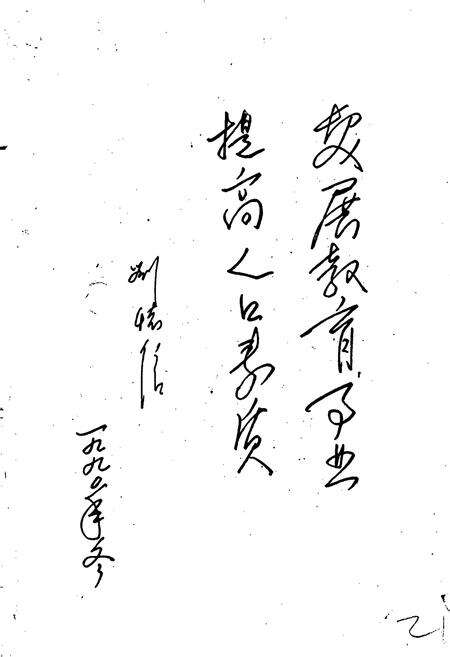 发展教育事业
提高人口素质
刘怀信
一九九〇年冬